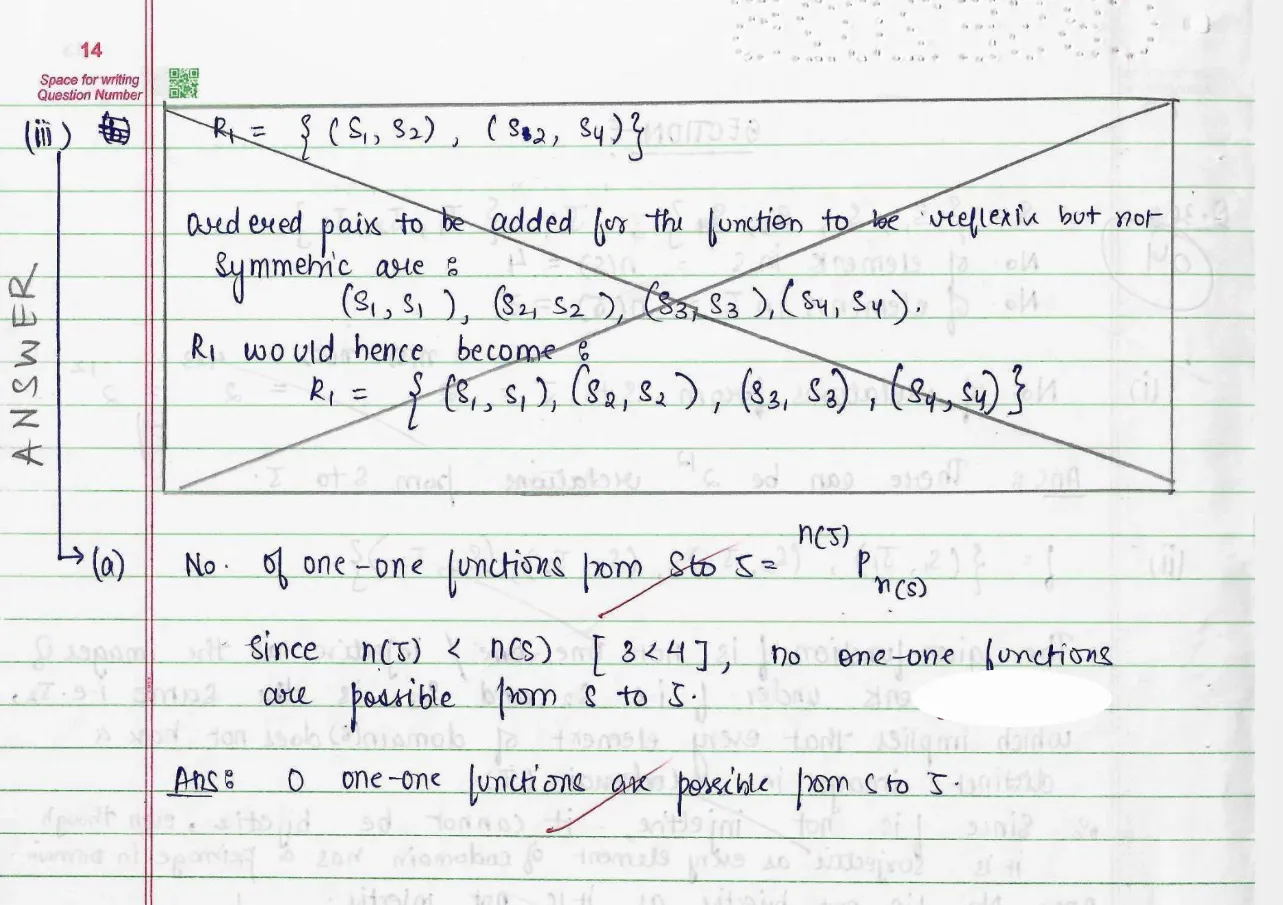 14
Space for writing
Question Number
(iii) R₁ = { (S₁, S₂), (S₂, S₄)}
ordered pairs to be added for the function to be reflexive but not
symmetric are :
(S₁, S₁), (S₂, S₂), (S₃, S₃), (S₄, S₄).
R₁ would hence become :
R₁ = { (S₁, S₁), (S₂, S₂), (S₃, S₃), (S₄, S₄) }
ANSWER
(a) No. of one-one functions from S to J = ⁿ⁽ᴶ⁾P n(S)
Since n(J) < n(S) [ 3<4 ], no one-one functions
are possible from S to J.
Ans: 0 one-one functions are possible from S to J.